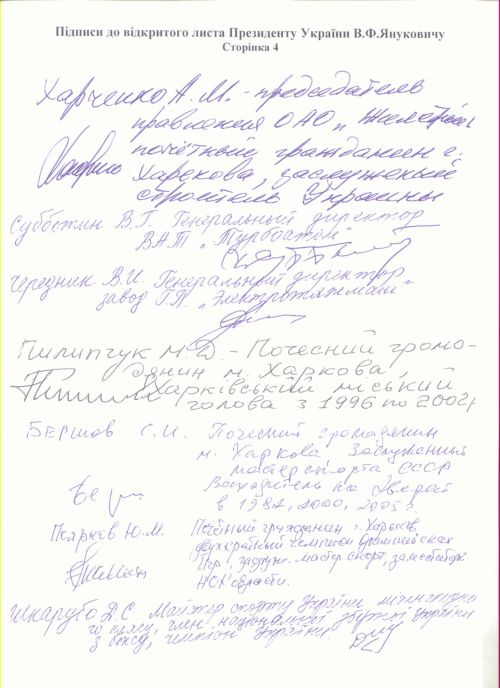 Підписи до відкритого листа Президенту України В.Ф.Януковичу
Сторінка 4
Харченко А.М. - председатель
правления ОАО „
почётный гражданин г.
Харькова, заслуженный
строитель Украины
Субботин В.Г. Генеральный директор
ВАТ „Турбоатом"
Чередник В.И. Генеральный директор
завод ГП „Электротяжмаш"
Пилипчук М.Д. - Почесний громо-
дянин м. Харкова,
Харківській міський
голова з 1996 по 2002р
Бершов С.И. Почесний громадянин
м. Харкова Заслуженный
мастер спорта СССР
Восходитель на Эверест
в 1982, 2000, 2005 г.
Ю.М. Почётный гражданин г. Харьков,
чемпион
Игр, мастер спорт,
НОК области.
Шкарупо Д.С. Майстер спорту України міжнародно
го класу, член національної збірної України
з боксу, чемпіон України.